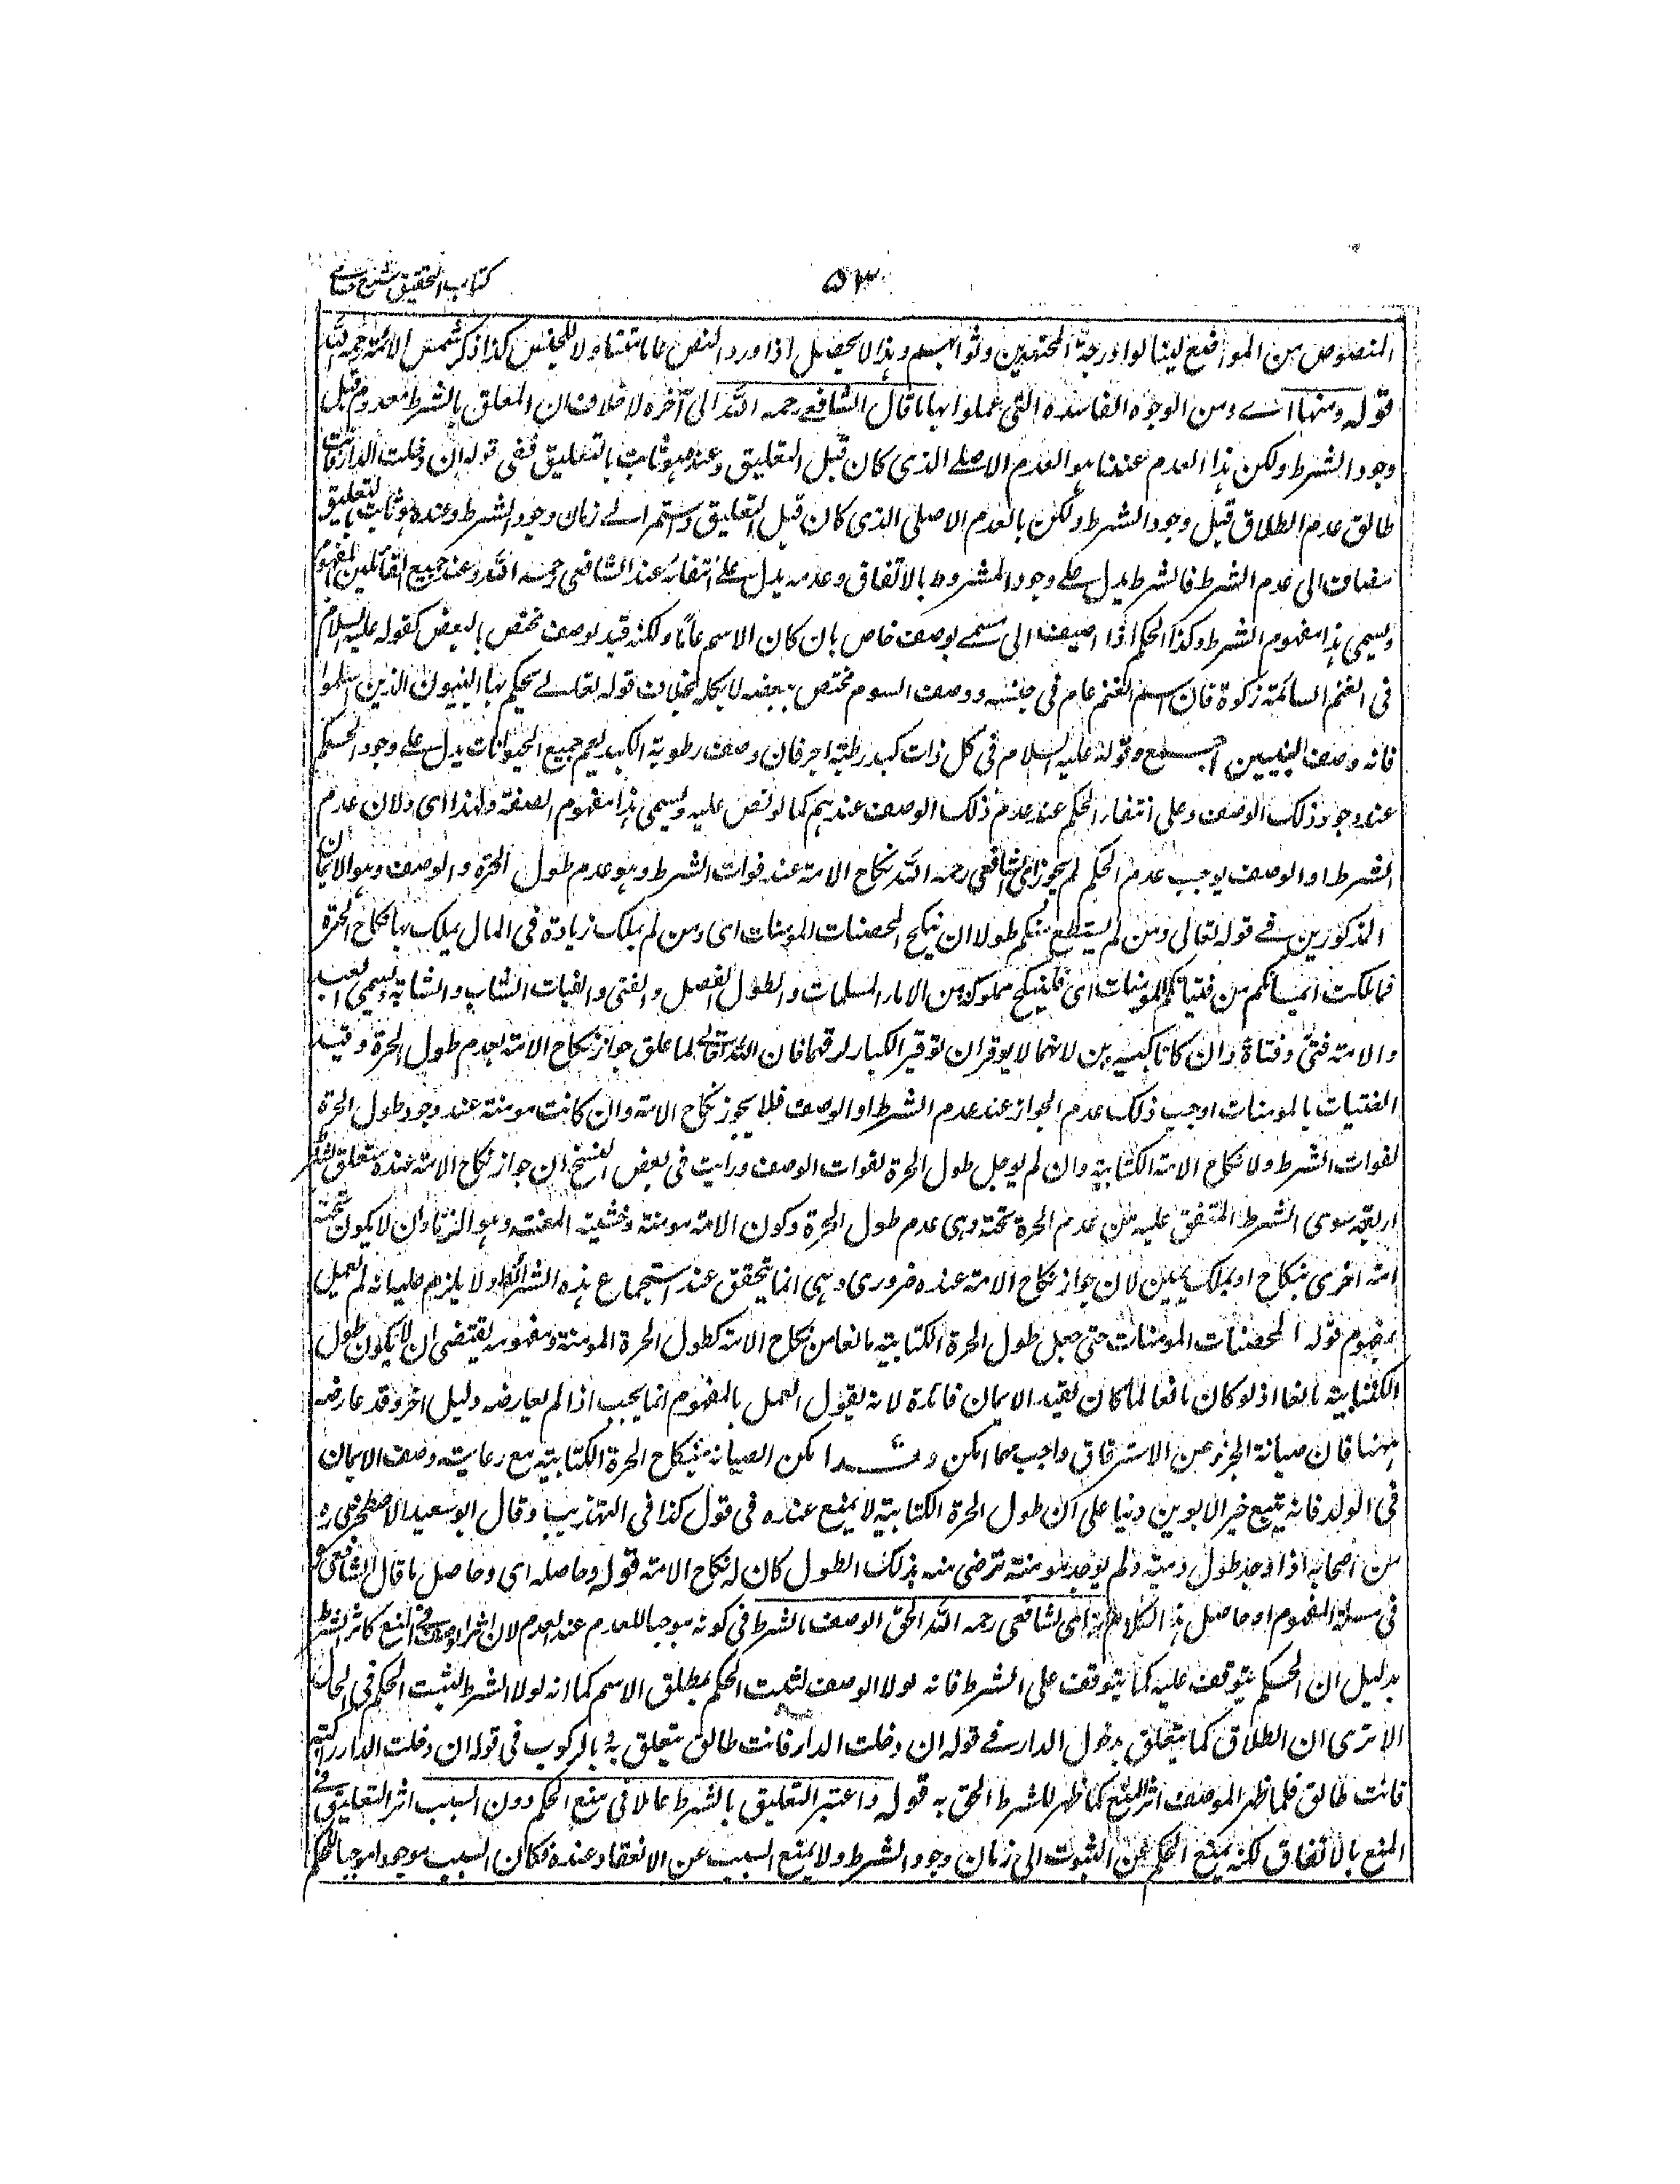 كتاب التحقيق شرح حسامى
٥٣
المنصوص من المواضع لينالوا درجة المجتهدين وثوابهم وهذا لا يحصل اذا ورد النص عاما متناولا للجنس كذا ذكر شمس الائمة رحمه الله
قوله ومنها اے ومن الوجوه الفاسدة التى عملوا بها ما قال الشافعے رحمه الله الى آخره لا خلاف ان المعلق بالشرط معدوم قبل
وجود الشرط ولكن هذا العدم عندنا هو العدم الاصلے الذى كان قبل التعليق وعنده هو ثابت بالتعليق ففى قوله ان دخلت الدار فانت
طالق عدم الطلاق قبل وجود الشرط ولكن بالعدم الاصلى الذى كان قبل التعليق واستمر الے زمان وجود الشرط وعنده هو ثابت بالتعليق
مضاف الى عدم الشرط فالشرط يدل علے وجود المشروط بالاتفاق وعدمه يدل علے انتفائه عند الشافعى رحمه الله وعند جميع القائلين بالمفهوم
ويسمى هذا مفهوم الشرط وكذا الحكم اذا اضيف الى مسمے بوصف خاص بان كان الاسم عامًا ولكنه قيد بوصف مختص بالبعض كقوله عليه السلام
فى الغنم السائمة زكوة فان اسم الغنم عام فى جنسه ووصف السوم مختص ببعضه لا بكله بخلاف قوله تعالے يحكم بها النبيون الذين اسلموا
فانه وصف النبيين اجمع وقوله عليه السلام فى كل ذات كبد رطبة اجر فان وصف رطوبة الكبد يعم جميع الحيوانات يدل علے وجود الحكم
عند وجود ذلك الوصف وعلى انتفاء الحكم عند عدم ذلك الوصف عندهم كما لو نص عليه ويسمى هذا مفهوم الصفة ولهذا اى ولان عدم
الشرط او الوصف يوجب عدم الحكم لم يجوز اى الشافعى رحمه الله نكاح الامة عند فوات الشرط وهو عدم طول الحرة والوصف وهو الايمان
المذكورين فے قوله تعالى ومن لم يستطع منكم طولا ان ينكح المحصنات المومنات اى ومن لم يملك زيادة فى المال يملك بها نكاح الحرة
فما ملكت ايمانكم من فتياتكم المومنات اى فلينكح مملوكة من الاماء المسلمات والطول الفضل والفتى والفتاة الشاب والشابة ويسمى العبد
والامة فتى وفتاة وان كانا كبيرين لانهما لا يوقران توقير الكبار لرقهما فان الله تعالى لما علق جواز نكاح الامة بعدم طول الحرة وقيد
الفتيات بالمومنات اوجب ذلك عدم الجواز عند عدم الشرط او الوصف فلا يجوز نكاح الامة وان كانت مومنة عند وجود طول الحرة
لفوات الشرط ولا نكاح الامة الكتابية وان لم يوجد طول الحرة لفوات الوصف ورايت فى بعض النسخ ان جواز نكاح الامة عنده متعلق بشرائط
اربعة سوى الشرط المتفق عليه من عدم الحرة تحته وهى عدم طول الحرة وكون الامة مومنة وخشية العنت وهو الزنا وان لا يكون تحته
امة اخرى بنكاح او بملك يمين لان جواز نكاح الامة عنده ضرورى وهى انما يتحقق عند استجماع هذه الشرائط ولا يلزم عليه انه لم يعمل
بمفهوم قوله المحصنات المومنات حتى جعل طول الحرة الكتابية مانعا من نكاح الامة كطول الحرة المومنة ومفهومه يقتضى ان لا يكون طول
الكتابية مانعا اذ لو كان مانعا لما كان لقيد الايمان فائدة لانه يقول العمل بالمفهوم انما يجب اذا لم يعارضه دليل اخر وقد عارضه
ههنا فان صيانة الجزء عن الاسترقاق واجب مهما امكن وقد امكن الصيانة بنكاح الحرة الكتابية مع رعاية وصف الايمان
فى الولد فانه يتبع خير الابوين دينا على ان طول الحرة الكتابية لا يمنع عنده فى قول كذا فى التهذيب وقال ابو سعيد الاصطخرى ره
من اصحابه اذا وجد طول ذمية ولم يوجد مومنة ترضى منه بذلك الطول كان له نكاح الامة قوله وحاصله اى وحاصل ما قال الشافعى
فى مسئلة المفهوم او حاصل هذا الكلام انه اى الشافعى رحمه الله الحق الوصف بالشرط فى كونه موجبا للعدم عند العدم لان اثر الوصف فى المنع كاثر الشرط
بدليل ان الحكم يتوقف عليه كما يتوقف على الشرط فانه لولا الوصف لثبت الحكم بمطلق الاسم كما انه لولا الشرط لثبت الحكم فى الحال
الا ترى ان الطلاق كما يتعلق بدخول الدار فے قوله ان دخلت الدار فانت طالق يتعلق به بالركوب فى قوله ان دخلت الدار راكبة
فانت طالق فلما ظهر للوصف اثر المنع كما ظهر للشرط الحق به قوله واعتبر التعليق بالشرط عاملا فى منع الحكم دون السبب اثر التعليق فے
المنع بالاتفاق لكنه يمنع الحكم عن الثبوت الى زمان وجود الشرط ولا يمنع السبب عن الانعقاد عنده فكان السبب موجودا موجبا للحكم